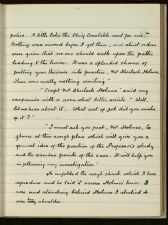 police. A letter lets the Chief Constable and you in."
Nothing was moved before I got there, and strict orders
were given that no one should walk upon the paths
leading to the house. It was a splendid chance of
putting your theories into practice, Mr Sherlock Holmes.
There was really nothing wanting."
"Except Mr Sherlock Holmes" said my
companion with a somewhat bitter smile. "Well,
let us hear about it. What sort of job did you make
of it?"
"I must ask you first, Mr Holmes, to
glance at this rough plan which will give you a
general idea of the position of the Professor's study
and the various points of the case. It will help you
in following my investigation."
He unfolded the rough chart which I here
reproduce and he laid it across Holmes' knee. I
rose and standing behind Holmes I studied it
over his shoulder.